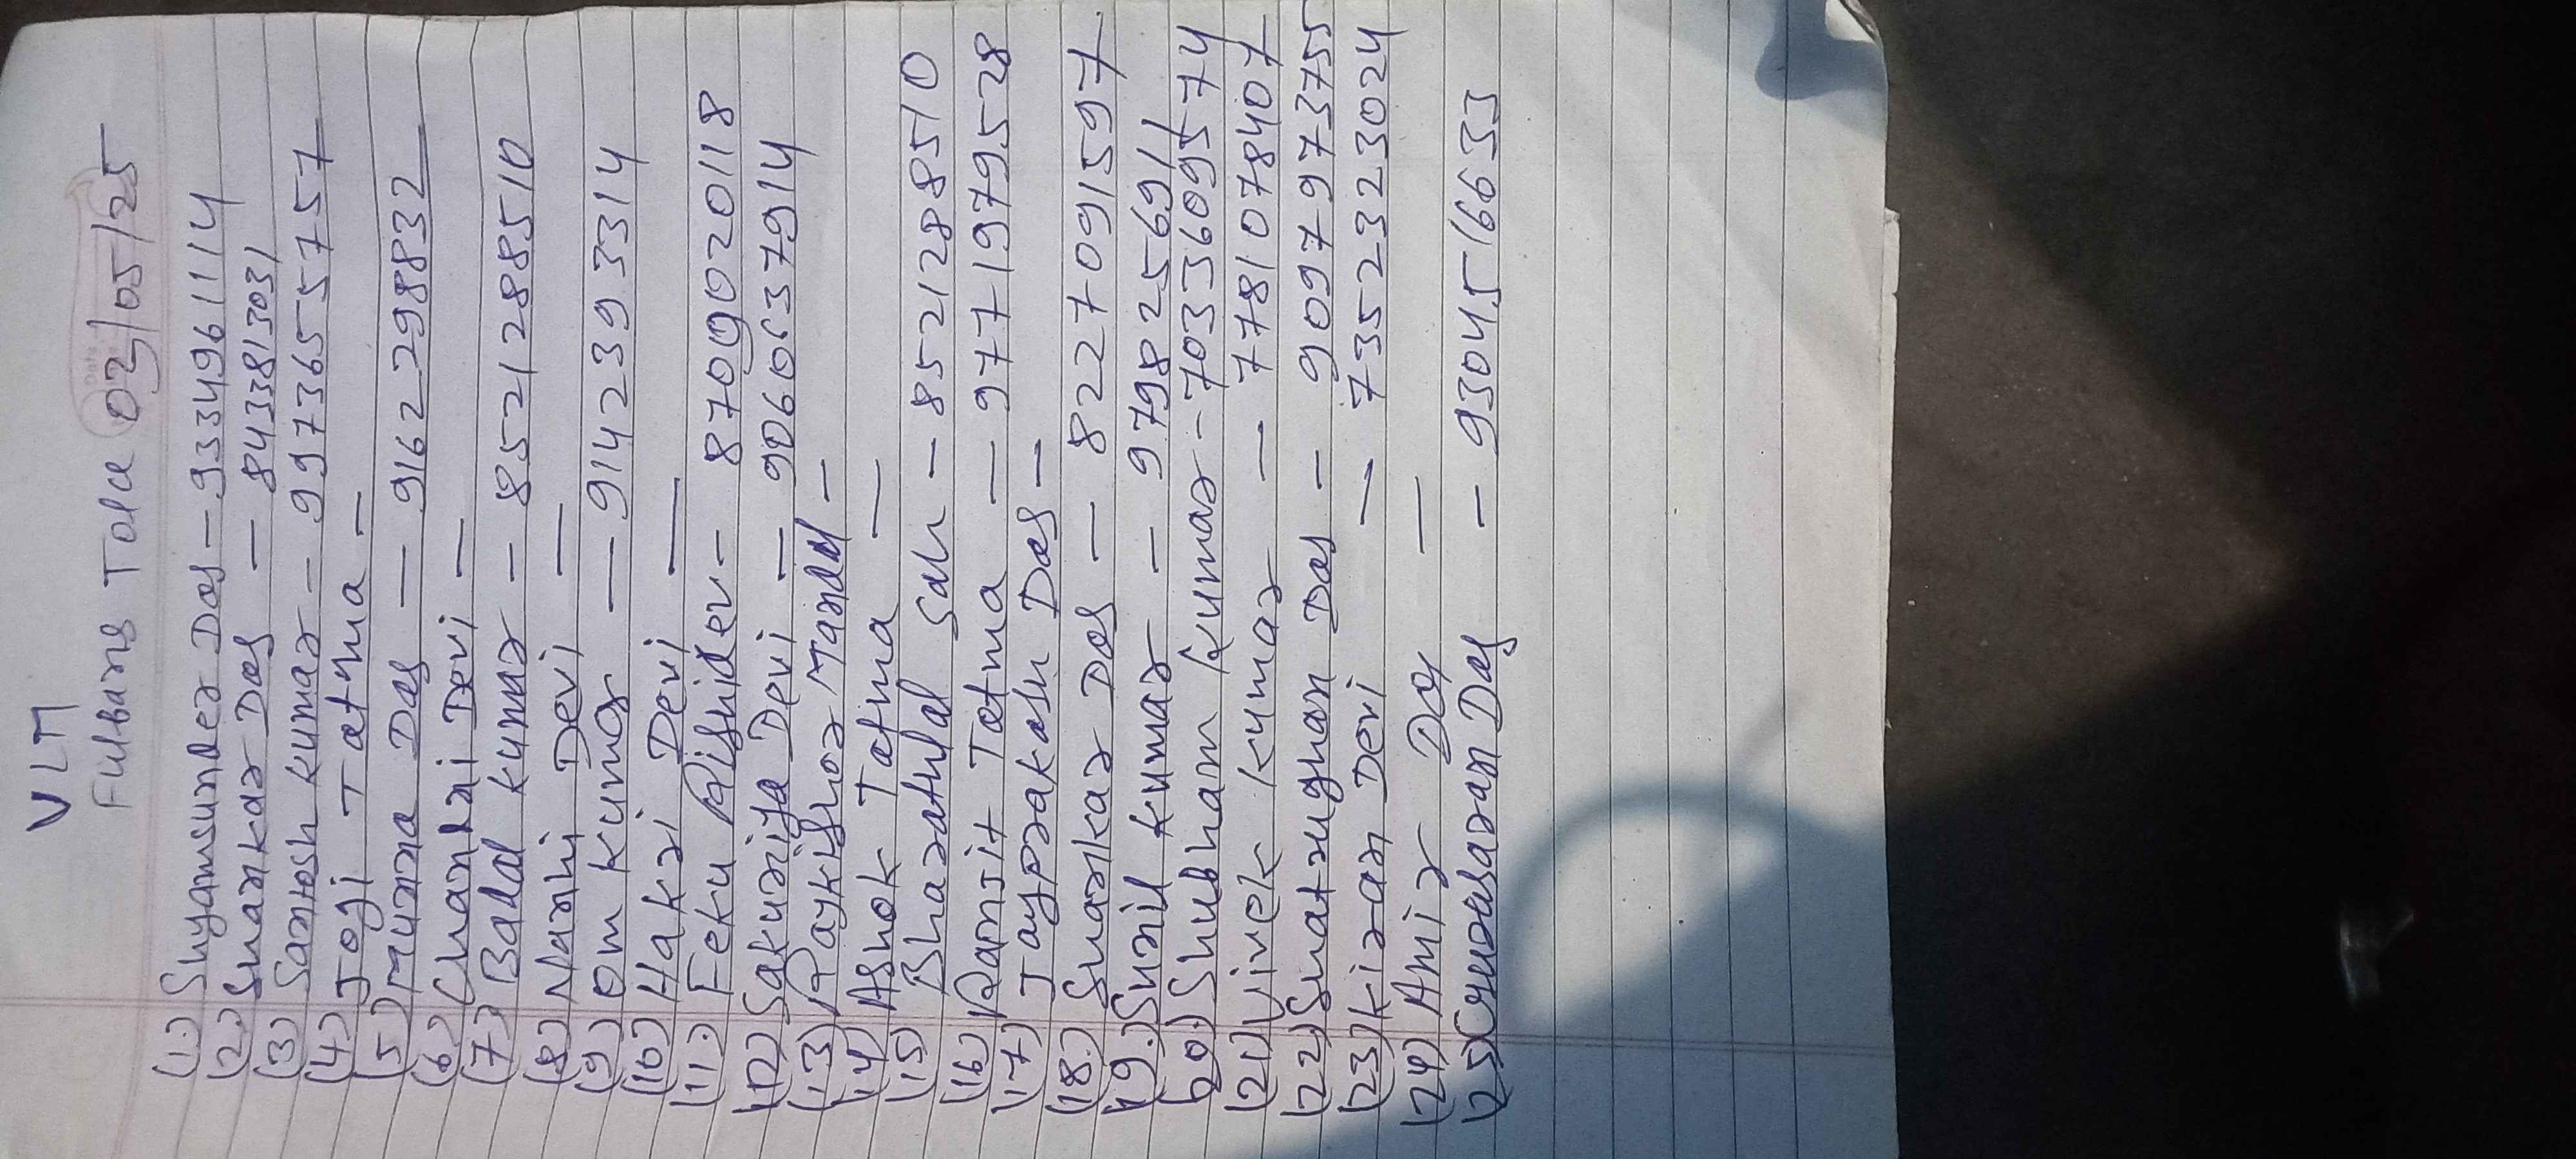 VLM
Fulbani Tola 03/05/25
(1.) Shyamsunder Das - 9334961114
(2.) Shankar Das - 8433813031
(3) Santosh Kumar - 9973655757
(4.) Jogi Tatma -
(5.) Munna Das - 9162298832
(6.) Chandni Devi -
(7.) Balal Kumar - 8521288510
(8.) Nanhi Devi -
(9.) Om Kumar - 9142393314
(10) Hakri Devi -
(11.) Feku Rishidev - 8709020118
(12) Sakuniya Devi - 9060637914
(13) Raykishor Mandal -
(14) Ashok Tatma -
(15) Bharathlal Sah - 8521288510
(16) Ranjit Tatma - 9771979528
(17) Jayprakash Das -
(18.) Shankar Das - 8227091597
(19.) Sunil Kumar - 979825691
(20.) Shubham Kumar - 7033609574
(21) Vivek Kumar - 7781078407
(22) Shatrughan Das - 9097973755
(23) Kiran Devi - 7352323024
(24) Amir Das -
(25) Gurusaran Das - 9304516633